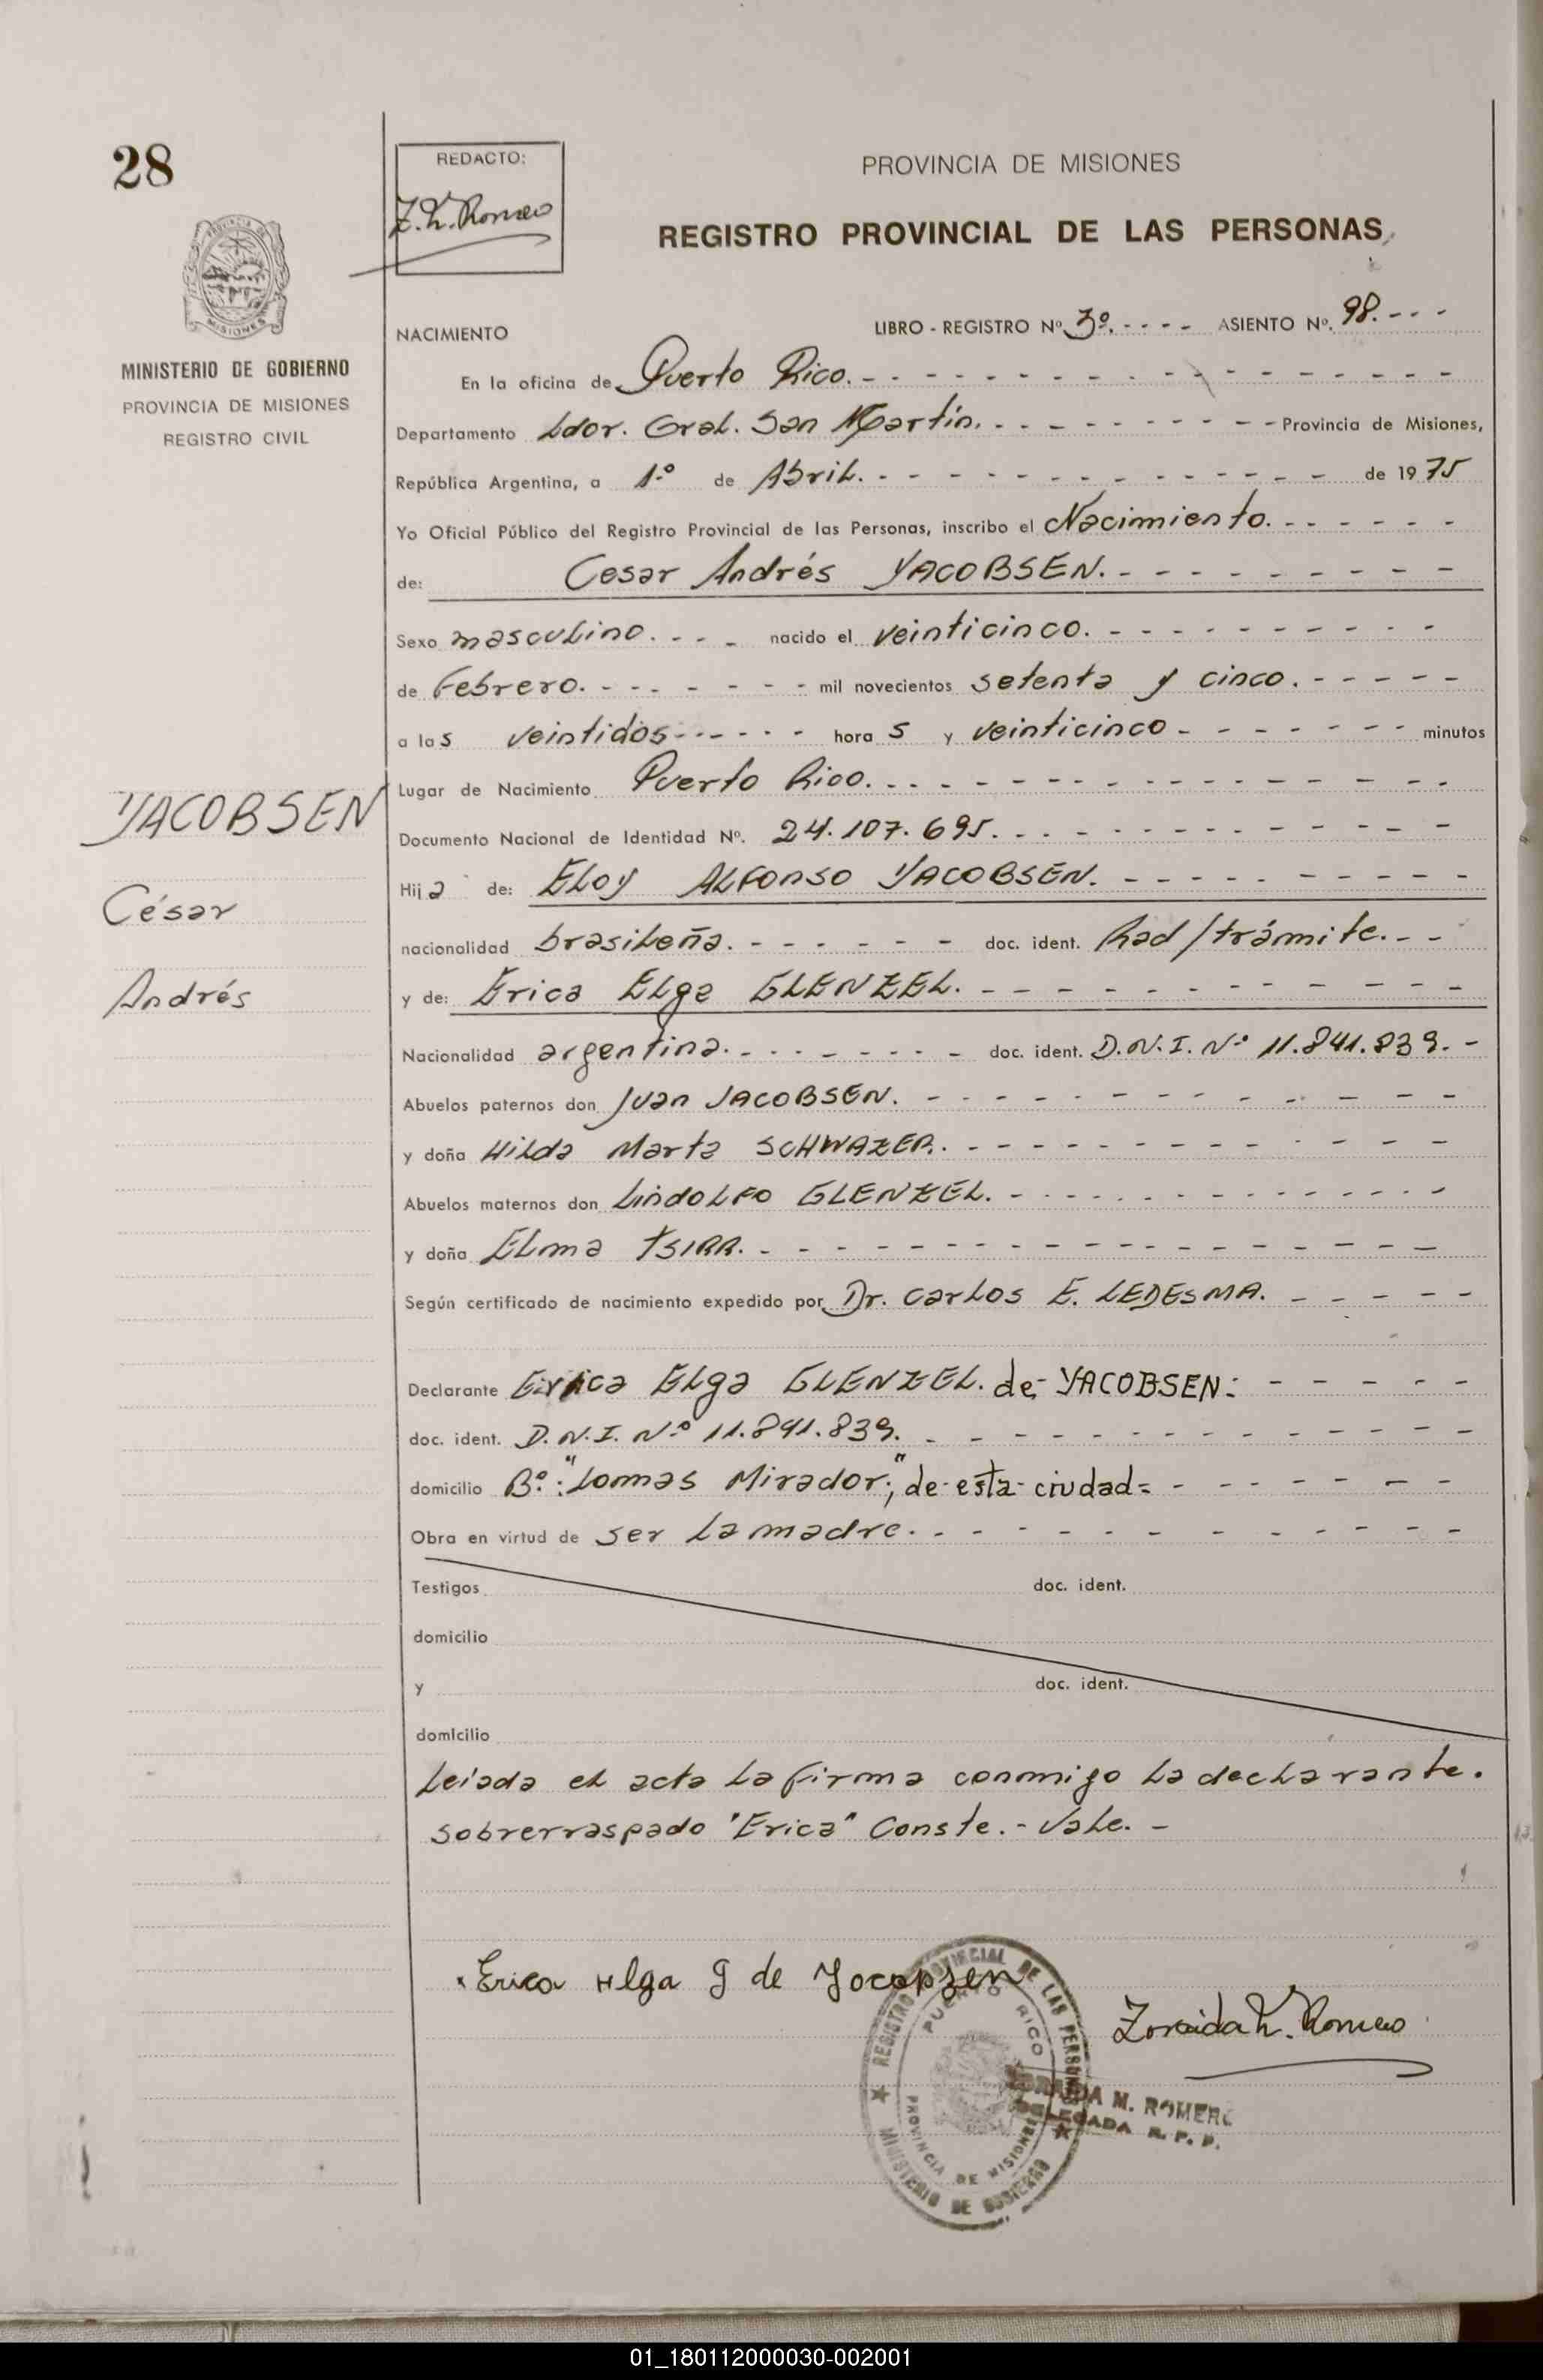 28
REDACTO:
Z. M. Romero
PROVINCIA DE MISIONES
REGISTRO PROVINCIAL DE LAS PERSONAS
MISIONES
MINISTERIO DE GOBIERNO
PROVINCIA DE MISIONES
REGISTRO CIVIL
NACIMIENTO LIBRO - REGISTRO Nº 3º.---- ASIENTO Nº. 98.---
En la oficina de Puerto Rico.-----------------
Departamento Ldor. Gral. San Martín.---------Provincia de Misiones,
República Argentina, a 1.º de Abril.-------------- de 1975
Yo Oficial Público del Registro Provincial de las Personas, inscribo el Nacimiento.------
de: Cesar Andrés YACOBSEN.---------
Sexo masculino.---- nacido el veinticinco.----------
de Febrero.-------- mil novecientos setenta y cinco.-----
a las veintidos------ horas y veinticinco------- minutos
Lugar de Nacimiento Puerto Rico.---------------
Documento Nacional de Identidad Nº. 24.107.695.------------
YACOBSEN
César
Andrés
Hija de: ELOY ALFONSO YACOBSEN.----------
nacionalidad brasileña.------- doc. ident. Rad/trámite.--
y de: Erica Elga GLENZEL.-------------
Nacionalidad argentina.-------- doc. ident. D.N.I. Nº 11.841.839.-
Abuelos paternos don Juan JACOBSEN.--------------
y doña Hilda Marta SCHWAZER.-------------
Abuelos maternos don LindoLFo GLENZEL.-------------
y doña Elma TSIRR.------------------
Según certificado de nacimiento expedido por Dr. Carlos E. LEDESMA.-----
Declarante Erica Elga GLENZEL. de YACOBSEN:-----
doc. ident. D.N.I. Nº 11.841.839.-------------
domicilio Bº.: "Lomas Mirador;" de-esta-ciudad=-------
Obra en virtud de ser La madre.-------------
Testigos doc. ident.
domicilio
y doc. ident.
domicilio
Leíada el acta la firma conmigo la declarante.
sobrerraspado "Erica" Conste.- Vale.-
Erica Elga G de Yocopzen
Zoraida M. Romero
REGISTRO PROVINCIAL DE LAS PERSONAS
PUERTO RICO
PROVINCIA DE MISIONES
MINISTERIO DE GOBIERNO
ZORAIDA M. ROMERO
DELEGADA R. P. P.
01_180112000030-002001